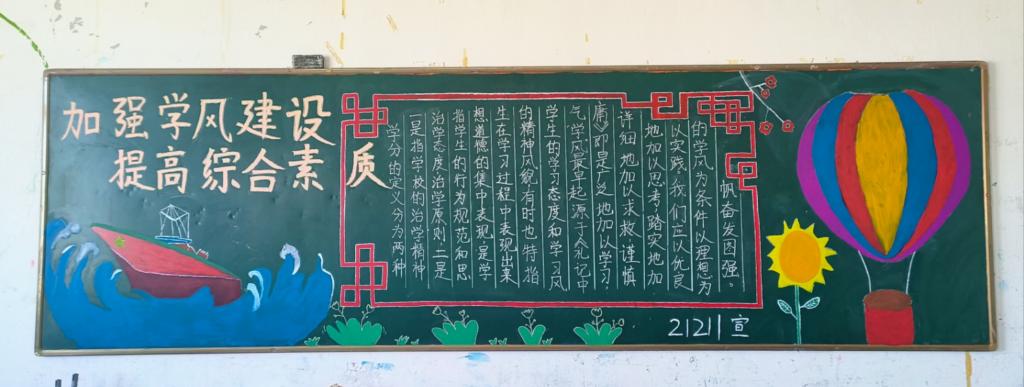 加强学风建设
提高综合素质
学分的定义分为两种
一是指学校的治学精神
治学态度治学原则二是
指学生的行为规范和思
想道德的集中表现,是学
生在学习过程中表现出来
的精神风貌有时也特指
学生的学习态度和学习风
气,学风最早起源于《礼记中
庸》即是广泛地加以学习:
详细地加以求教谨慎
地加以思考踏实地加
以实践,我们应以优良
的学风为条件以理想为
帆奋发图强。
21211宣